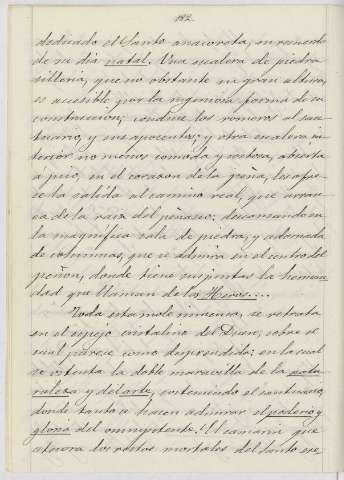 182.
dedicado el Santo anacoreta, en recuerdo
de su dia natal. Una escalera de piedra
silleria, que no obstante su gran altura,
es accesible por la ingeniosa forma de su
construccion, conduce los romeros al san-
tuario, y sus aposentos; y otra escalera in-
terior no menos comoda y costosa, abierta
á pico, en el corazon de la peña, les ofre-
ce la salida al camino real, que arran-
ca de la raiz del peñasco: descansando en
la magnífica sala de piedra, y adornada
de columnas, que se admira en el centro del
peñon, donde tiene sus juntas la herman-
dad que llaman de los Heros....
Toda esta mole inmensa, se retrata
en el espejo cristalino del Duero, sobre el
cual parece como desprendida; en la cual
se ostenta la doble maravilla de la natu-
raleza y del arte, sosteniendo el santuario,
donde tanto se hacen admirar el poderio y
gloria del omnipotente! El camarin que
atesora los restos mortales del Santo ere